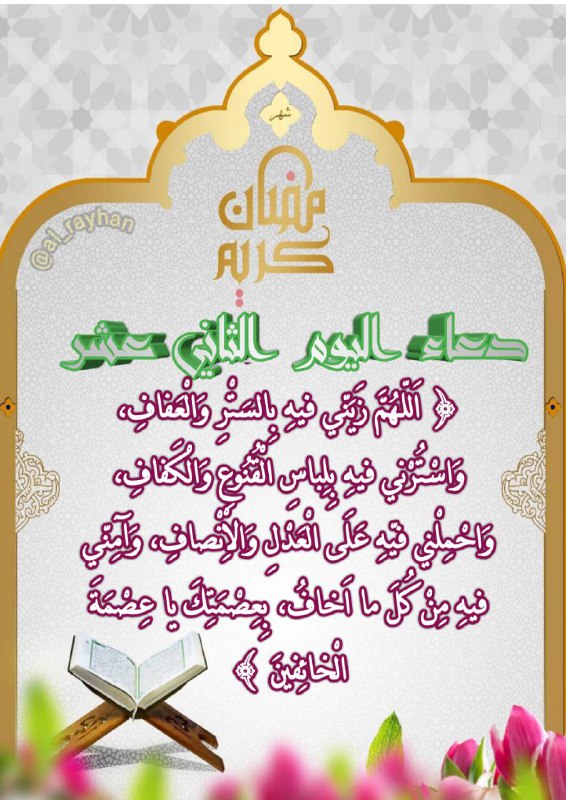 شهر
رمضان
كريم
@al_rayhan
دعاء اليوم الثاني عشر
﴿ اَللّهُمَّ زَيِّنّي فيهِ بِالسَتْرِ وَالْعَفافِ،
وَاسْتُرْني فيهِ بِلِباسِ الْقُنُوعِ وَالْكَفافِ،
وَاحْمِلْني فيهِ عَلَى الْعَدْلِ وَالْاِنْصافِ، وَآمِنّي
فيهِ مِنْ كُلِّ ما اَخافُ، بِعِصْمَتِكَ يا عِصْمَةَ
الْخائِفينَ ﴾